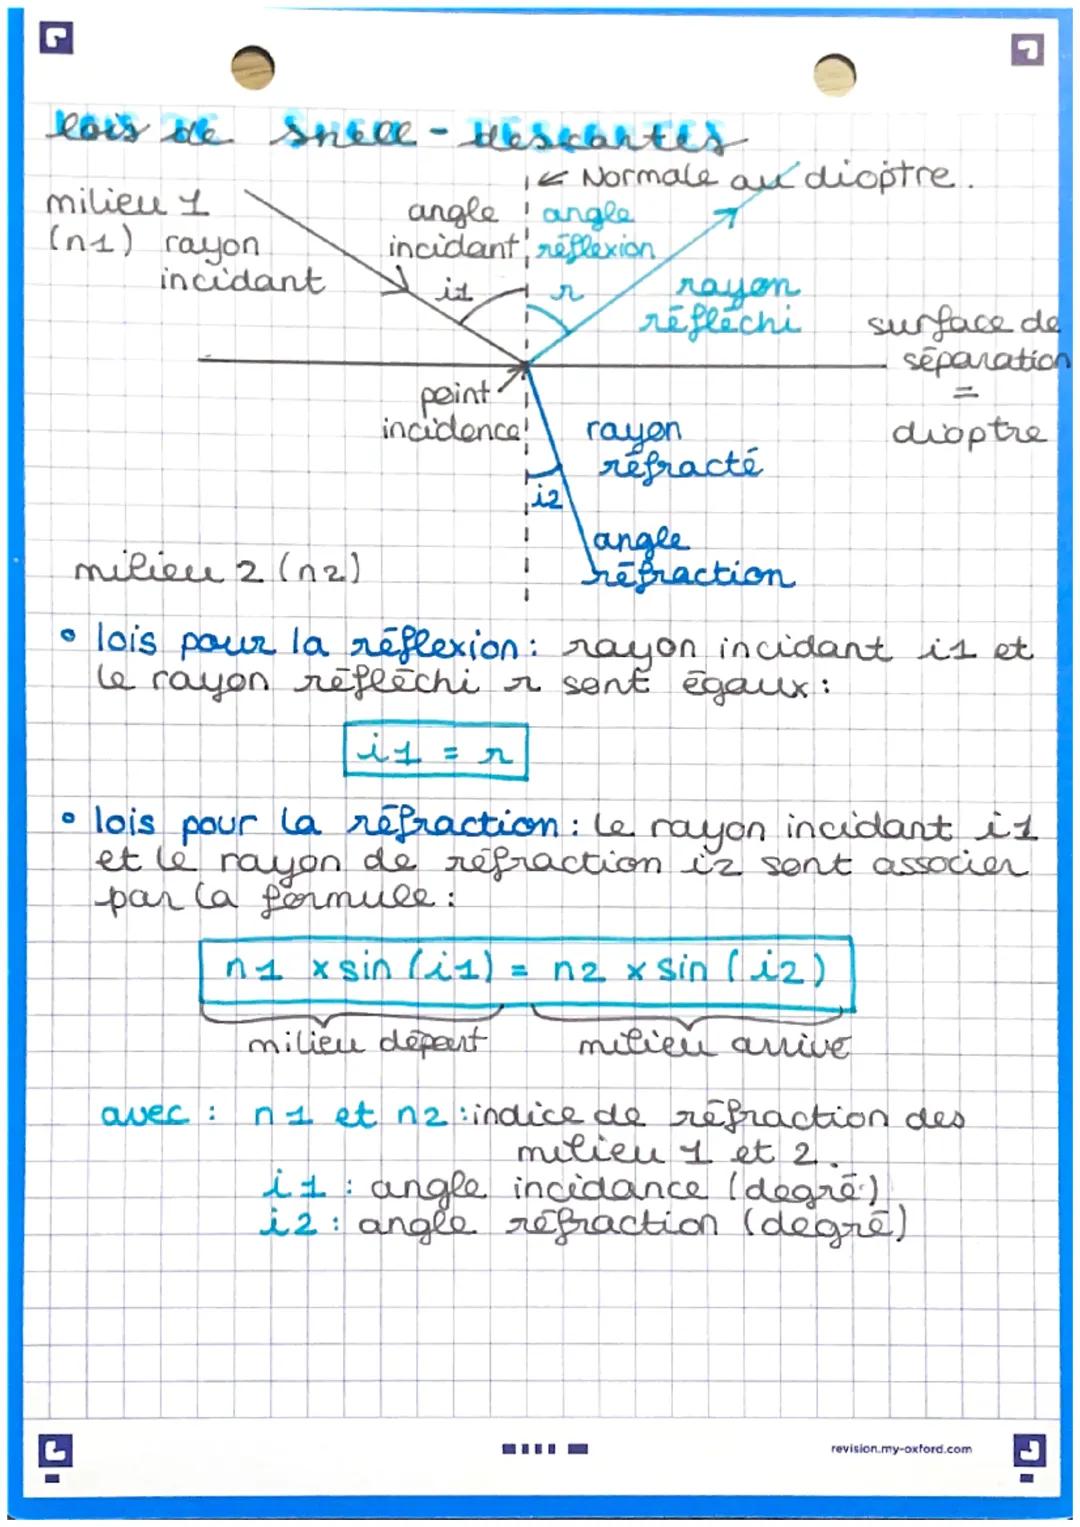 lois de Snell - descartes
← Normale au dioptre.
milieu 1
(n1) rayon
incidant
angle
incidant
i1
angle
réflexion
r
rayon
réfléchi
surface de
séparation
=
dioptre
point
incidence
rayon
réfracté
i2
angle
réfraction
milieu 2 (n2)
• lois pour la réflexion : rayon incidant i1 et
le rayon réfléchi r sont égaux :
i1 = r
• lois pour la réfraction : le rayon incidant i1
et le rayon de réfraction i2 sont associer
par la formule :
n1 x sin (i1) = n2 x sin (i2)
milieu départ
milieu arrivé
avec : n1 et n2 : indice de réfraction des
milieu 1 et 2.
i1 : angle incidance (degré)
i2 : angle réfraction (degré)
revision.my-oxford.com